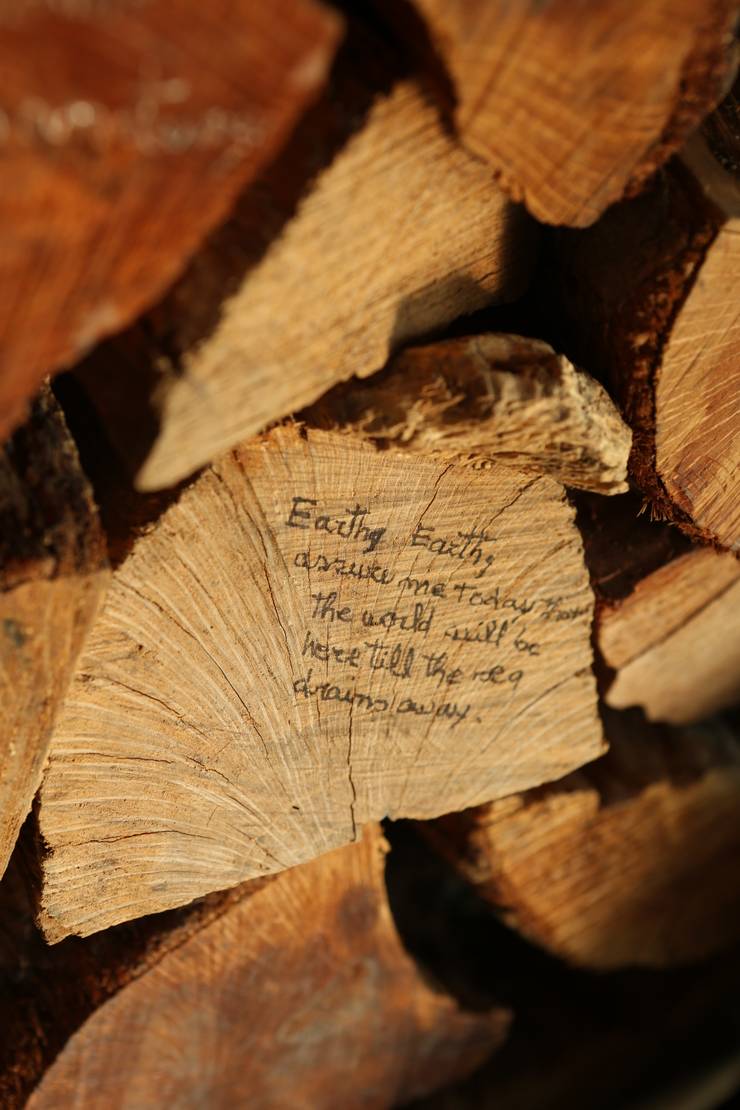 Earthy Earthy
assures me today that
the world will be
here till the sea
drains away.